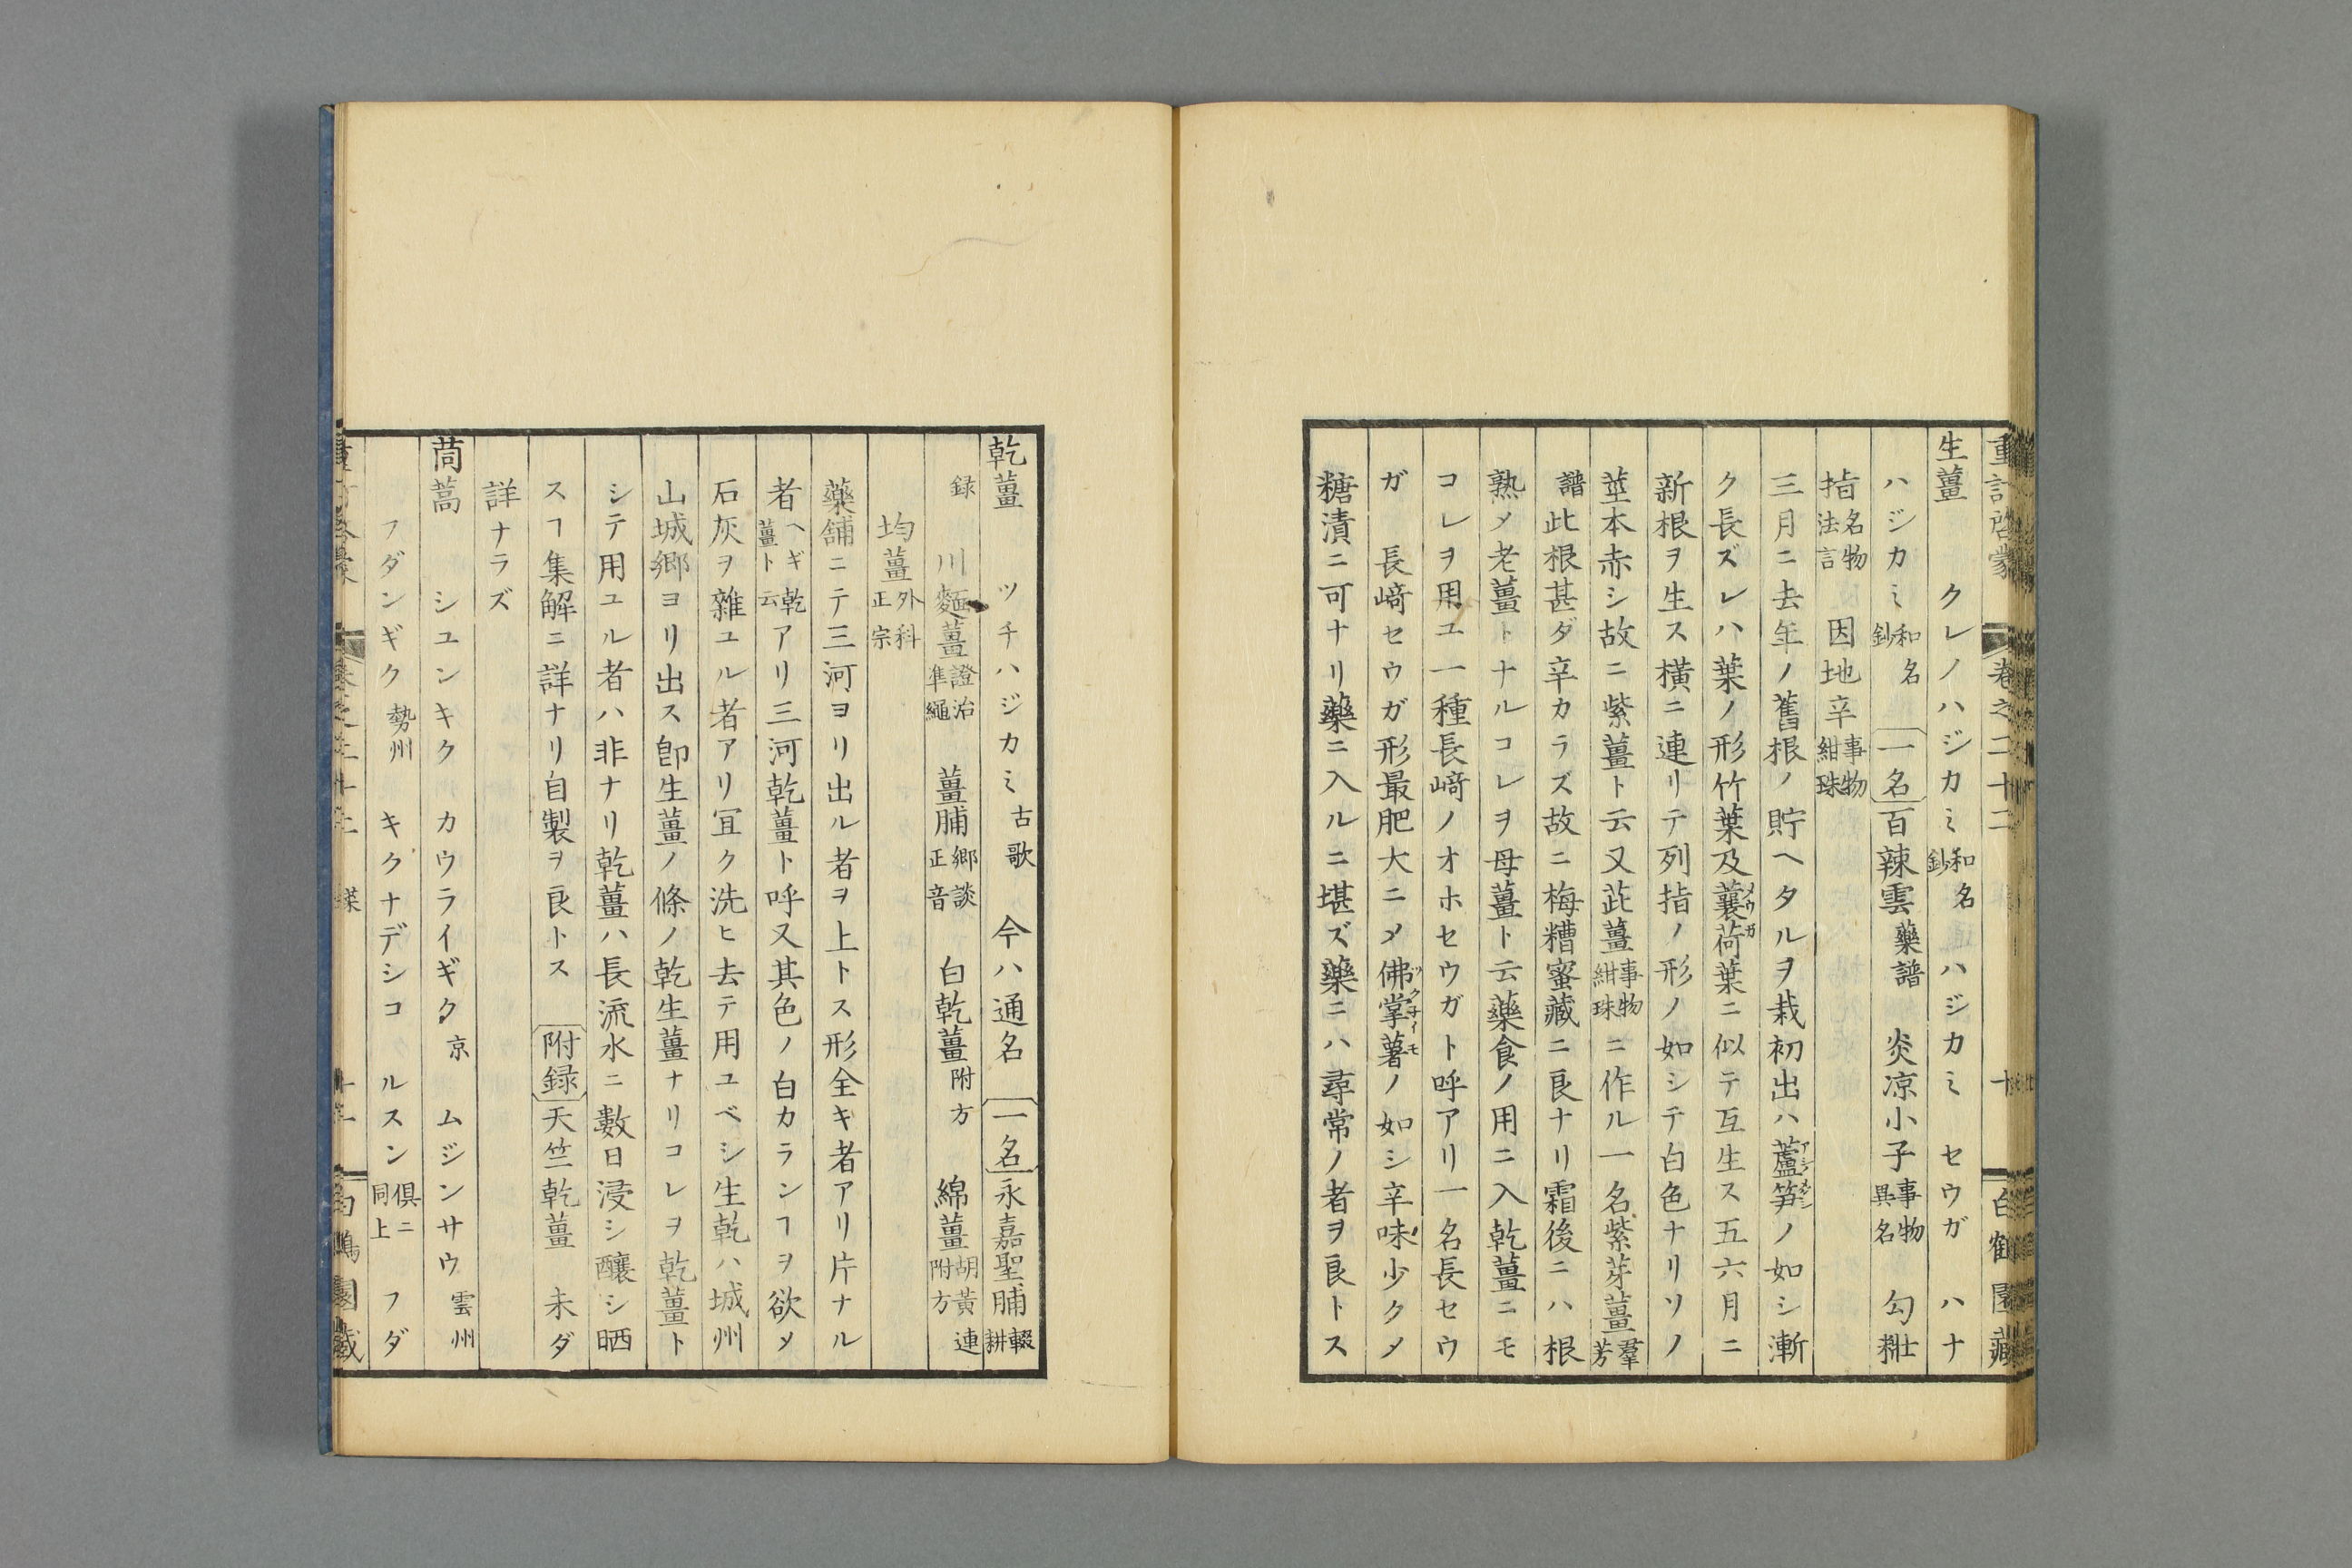 重訂啓蒙 卷之二十二 十 白鶴園藏
生薑 クレノハジカミ 和名鈔 ハジカミ セウガ ハナ
ハジカミ 和名鈔 一名 百辣雲 藥譜 炎凉小子 事物異名 勾
指 名物法言 因地辛 事物紺珠
三月ニ去年ノ舊根ノ貯ヘタルヲ栽初出ハ蘆笋ノ如シ漸
ク長ズレハ葉ノ形竹葉及蘘荷葉ニ似テ互生ス五六月ニ
新根ヲ生ス横ニ連リテ列指ノ形ノ如シテ白色ナリソノ
莖本赤シ故ニ紫薑ト云又茈薑 事物紺珠 ニ作ル一名紫芽薑 羣芳
譜 此根甚ダ辛カラズ故ニ梅糟蜜藏ニ良ナリ霜後ニハ根
熟メ老薑トナルコレヲ母薑ト云藥食ノ用ニ入乾薑ニモ
コレヲ用ユ一種長﨑ノオホセウガト呼アリ一名長セウ
ガ 長﨑セウガ形最肥大ニメ佛掌薯ノ如シ辛味少クメ
糖漬ニ可ナリ藥ニ入ルニ堪ズ藥ニハ尋常ノ者ヲ良トス
乾薑 ツチハジカミ 古歌 今ハ通名 一名 永嘉聖脯 輟耕
録 川麵薑 證治準繩 薑脯 郷談正音 白乾薑 附方 綿薑 胡黃連附方
均薑 外科正宗
藥舗ニテ三河ヨリ出ル者ヲ上トス形全キ者アリ片ナル
者 ヘギ乾薑ト云 アリ三河乾薑ト呼又其色ノ白カランヿヲ欲メ
石灰ヲ雜ユル者アリ冝ク洗ヒ去テ用ユベシ生乾ハ城州
山城郷ヨリ出ス卽生薑ノ條ノ乾生薑ナリコレヲ乾薑ト
シテ用ユル者ハ非ナリ乾薑ハ長流水ニ數日浸シ釀シ晒
スヿ集解ニ詳ナリ自製ヲ良トス 附録 天竺乾薑 未ダ
詳ナラズ
茼蒿 シユンキク カウライギク 京 ムジンサウ 雲州
フダンギク 勢州 キクナデシコ ルスン 俱ニ同上 フダ